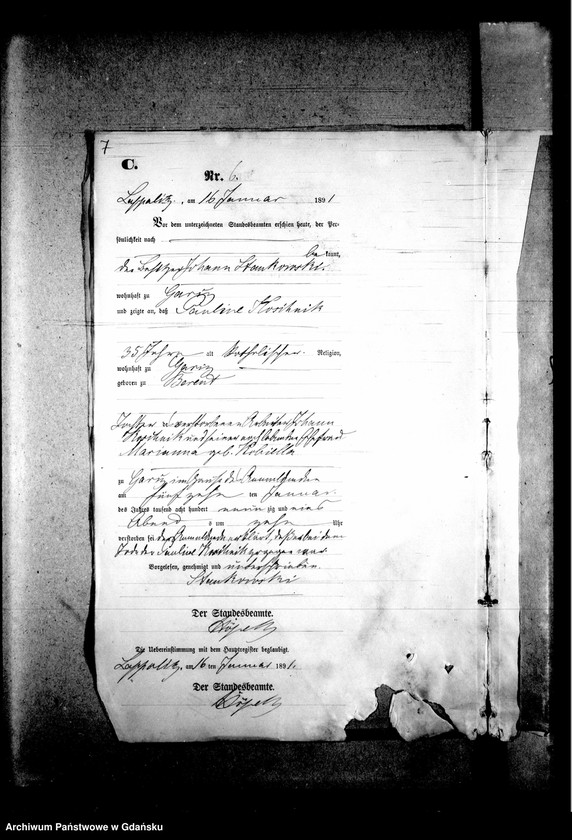 7
C.
Nr. 6
am 16 Januar 1891
Vor dem unterzeichneten Standesbeamten erschien heute, der Per-
sönlichkeit nach
be kannt,
der Besitzer Johann Stankowski
wohnhaft zu
und zeigte an, daß Pauline Koschnik
35 Jahre alt katholischer Religion,
wohnhaft zu
geboren zu Berent
Tochter verstorbenen Johann
Koschnik und seiner noch lebenden Ehefrau
Marianna geb. Kobiella
zu im Hause des Anmeldenden
am fünfzehnten Januar
des Jahres tausend acht hundert neunzig und eins
Abends um zehn Uhr
verstorben sei
Tode der Pauline Koschnik zugegen war.
Vorgelesen, genehmigt und unterschrieben
Stankowski
Der Standesbeamte.
Die Uebereinstimmung mit dem Hauptregister beglaubigt.
am 16 ten Januar 1891.
Der Standesbeamte.
Archiwum Państwowe w Gdańsku